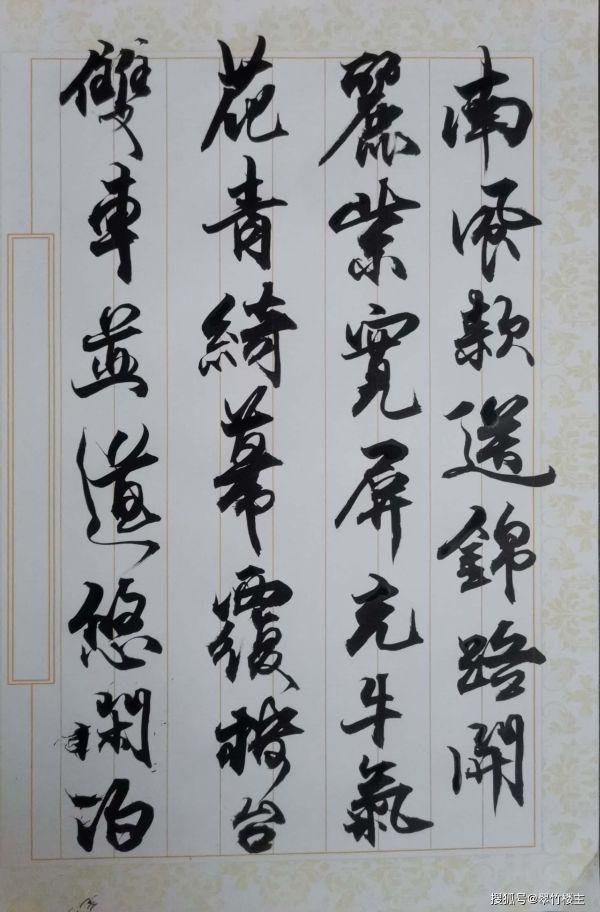 南風款送錦路開
麗紫寬屏充牛氣
花青綺幕覆樓台
雙車並道悠閑泊
搜狐号@翠竹楼主